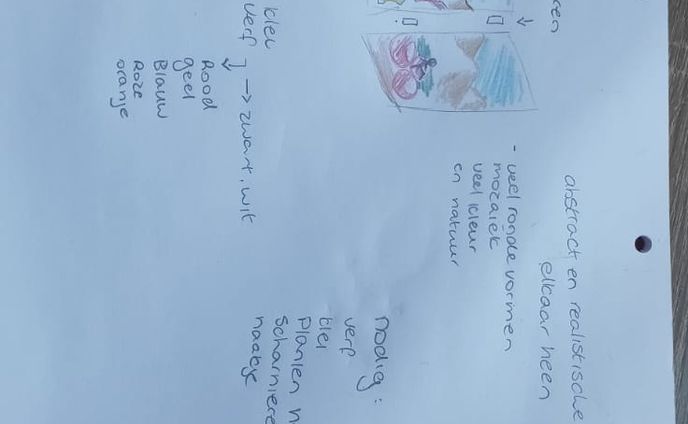 ren
abstract en realistische
elkaar heen
- veel ronde vormen
mozaiek
veel kleur
en natuur
nodig:
verf
klei
Planken
Scharniere
klei
verf
→ zwart, wit
Rood
geel
Blauw
Roze
oranje